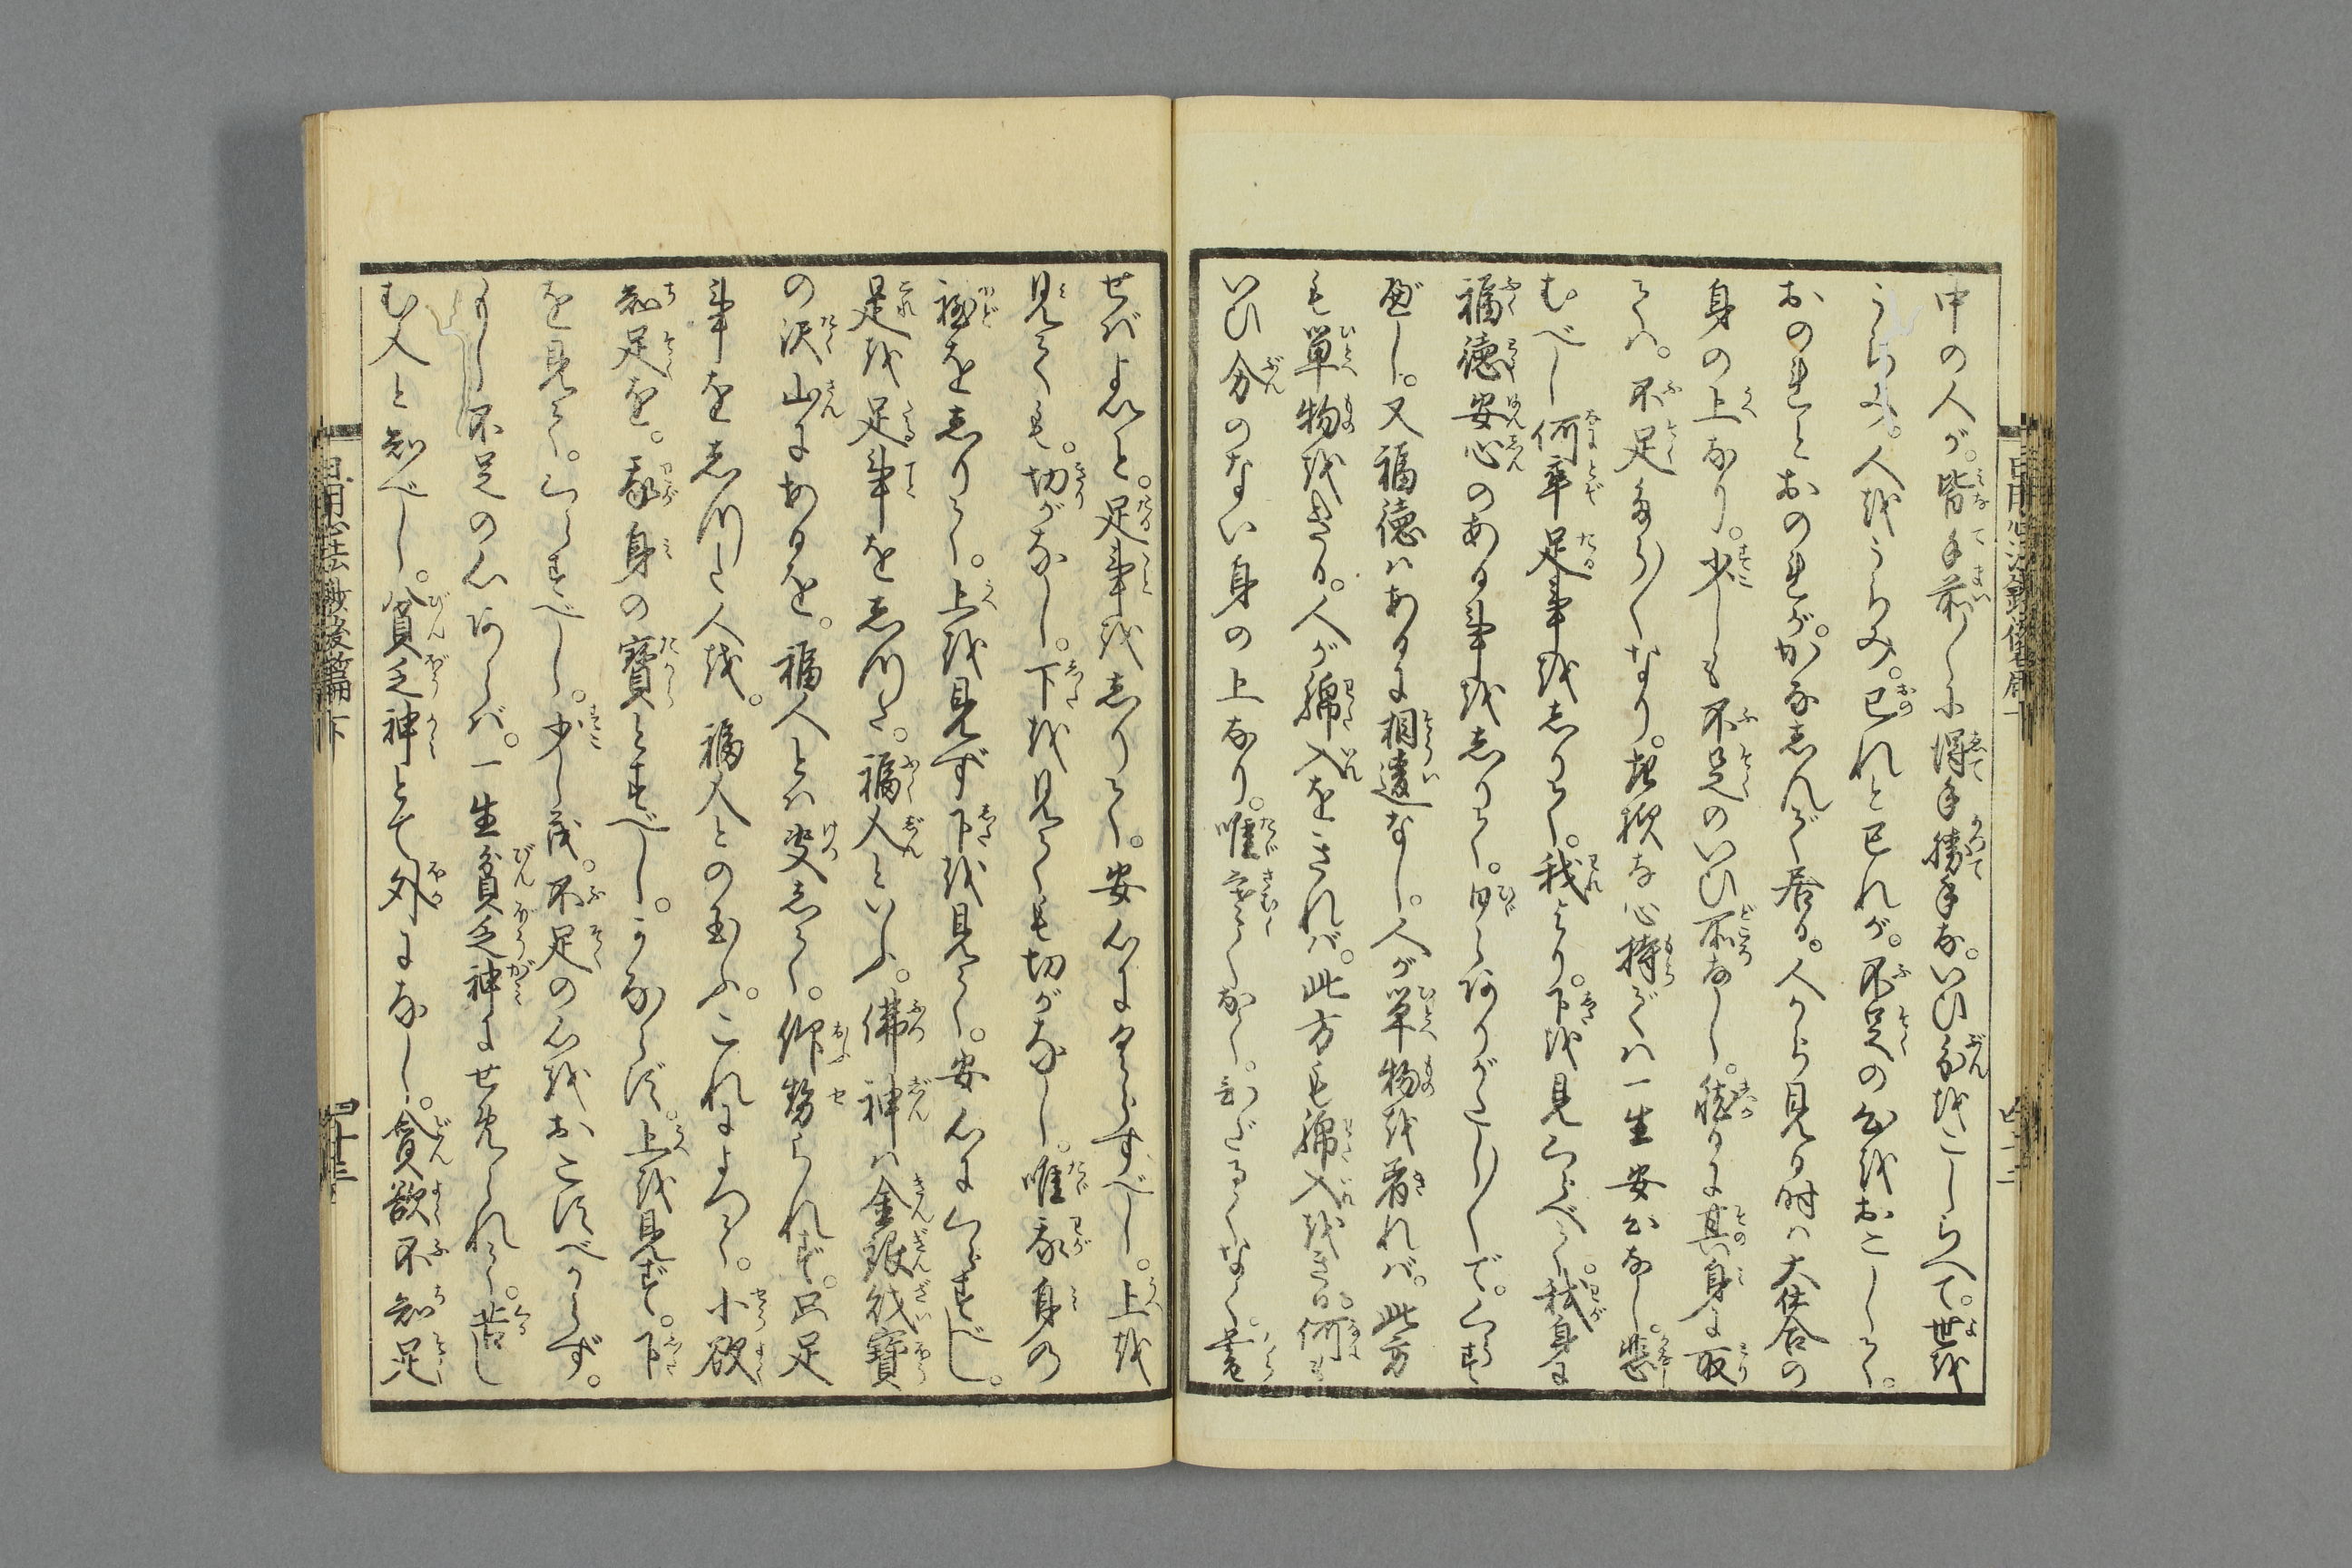 中の人が。皆手前〳〵に得手勝手な。いひ分をこしらへて。世を
うらみ。人をうらみ。己れと己れが。不足の心をおこして。
おのれとおのれが。かなしんで居る。人から見る時は大仕合の
身の上なり。少しも不足のいひ所なし。然るに其身に取
ては。不足たら〳〵なり。
心持では一生安心なし。悲
むべし何卒足事をしりて。我より。下を見くらべて。我身に
福徳安心のある事をしりて。日々ありがたい〳〵で。くらす
べし。又福徳はあるに相違なし。人が単物を着れば。此方
も単物をきる。人が綿入をきれば。此方も綿入をきる。何も
いひ分のない身の上なり。唯寒くなく。ひだるくなく。暮
せばよいと。足事をしりて。安心にくらすべし。上を
見ても。切がなし。下を見ても切がなし。唯我身の
程をしりて。上を見ず下を見て。安心にくらすべし。
足を足事をしつた。福人といふ。佛神は金銀財寶
の沢山にあるを。福人とは決して。仰せられず。只足
事をしつた人を。福人との玉ふ。これによつて。小欲
知足を。我身の寶とすべし。かならず。上を見ず。下
を見て。くらすべし。少しも。不足の心をおこすべからず。
もし不足の心あらば。一生貧乏神にせめられて。苦し
む人と知べし。貧乏神とて外になし。貪欲不知足
日用心法鈔後篇下
四十三